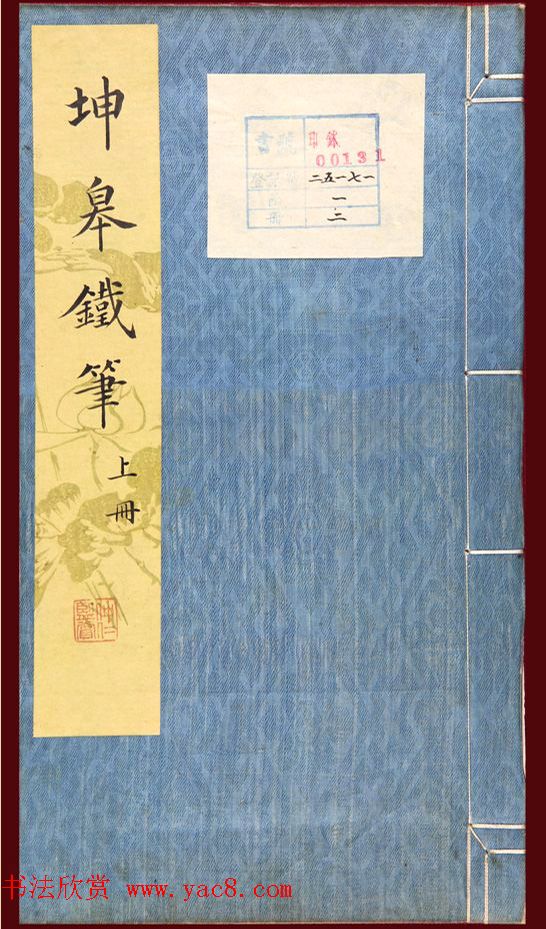 坤皋鐵筆
上冊
書號
印鉥
00131
二五一七一
一
冊
二
书法欣赏 www.yac8.com